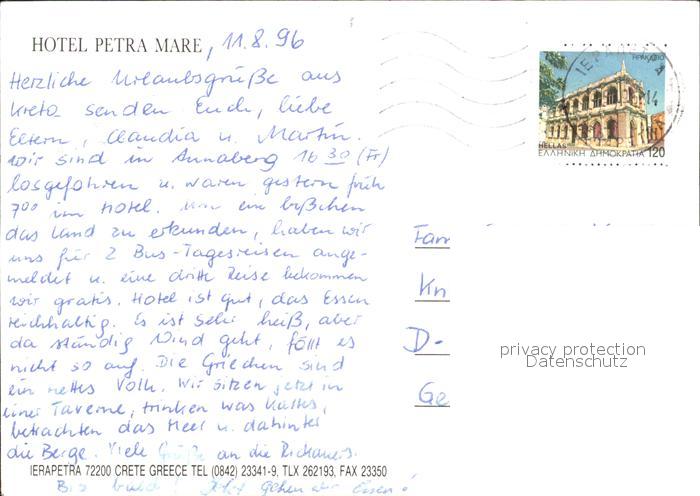 HOTEL PETRA MARE, 11.8.96
Herzliche Urlaubsgrüße aus
Kreta senden Euch, liebe
Eltern, Claudia u. Martin.
Wir sind in Annaberg 16 30 (Fr)
losgefahren u. waren gestern früh
7 00 im Hotel. Um ein bißchen
das Land zu erkunden, haben wir
uns für 2 Bus-Tagesreisen ange-
meldet u. eine dritte Reise bekommen
wir gratis. Hotel ist gut, das Essen
reichhaltig. Es ist sehr heiß, aber
da ständig Wind geht, fällt es
nicht so auf. Die Griechen sind
ein nettes Volk. Wir sitzen jetzt in
einer Taverne, trinken was Kaltes,
betrachten das Meer u. dahinter
die Berge. Viele Grüße an die
IERAPETRA 72200 CRETE GREECE TEL (0842) 23341-9, TLX 262193, FAX 23350
Bis bald! Jetzt gehen wir Essen!
ΗΡΑΚΛΕΙΟ
HELLAS
ΕΛΛΗΝΙΚΗ ΔΗΜΟΚΡΑΤΙΑ 120
ΙΕΡΑΠΕΤΡΑ
14
Fam
Kn
D-
Ge
privacy protection
Datenschutz